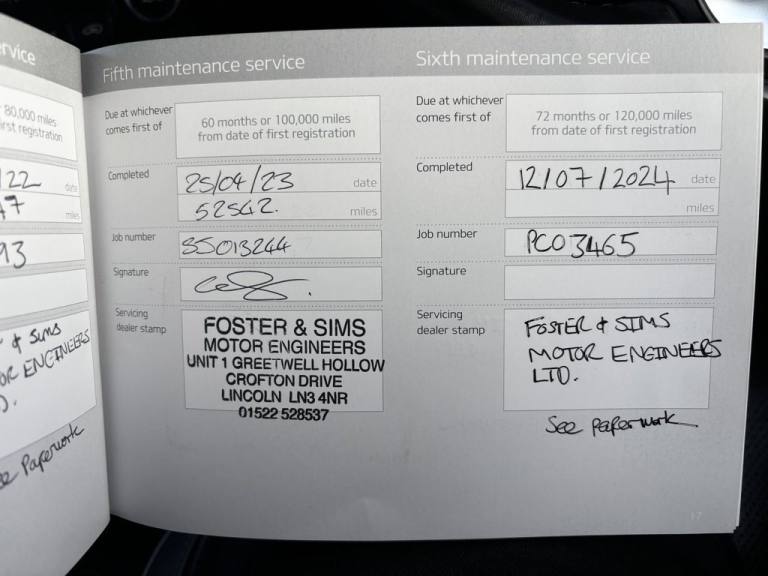 ervice
80,000 miles
irst registration
/22 date
47 miles
93
& Sims
OR ENGINEERS
D.
ee Paperwork
Fifth maintenance service
Due at whichever
comes first of
60 months or 100,000 miles
from date of first registration
Completed
25/04/23 date
52542. miles
Job number
SS013244
Signature
Servicing
dealer stamp
FOSTER & SIMS
MOTOR ENGINEERS
UNIT 1 GREETWELL HOLLOW
CROFTON DRIVE
LINCOLN LN3 4NR
01522 528537
Sixth maintenance service
Due at whichever
comes first of
72 months or 120,000 miles
from date of first registration
Completed
12/07/2024 date
miles
Job number
PCO3465
Signature
Servicing
dealer stamp
FOSTER & SIMS
MOTOR ENGINEERS
LTD.
See Paperwork
17